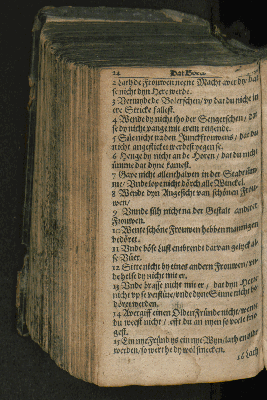 24 Dat Boeck
2 Lath de Frouwen neene Macht aver dy, dat
se nicht dyn Here werde.
3 Vormyde de Bolerschen / vp dat du nicht in
ere Stricke fallest.
4 Wende dy nicht tho der Sengerschen / dat
se dy nicht vange mit erem reitzende.
5 Süh nicht na den Junckfrouwens / dat du
nicht angesticket werdest yegen se.
6 Henge dy nicht an de Horen / dat du nicht
ümme dat dyne kamest.
7 Gape nicht allenthalven in der Stadt üm-
me / Unde lope nicht dörch alle Winckel.
8 Wende dyn Angesicht van schönen Frou-
wen /
9 Unde süh nicht na der Gestalt anderer
Frouwen.
10 Wente schöne Frouwen hebben mannigen
bedöret.
11 Unde böse Lust entbrent darvan gelyck al-
se Vüer.
12 Sitte nicht by eines andern Frouwen /
de helse dy nicht mit er.
13 Unde brasse nicht mit er / dat dyn Herte
nicht vp se verstüre / unde dyne Sinne nicht be-
döret werden.
14 Avergiff einen Olden Fründe nicht / wente
du weest nicht / efft du an nyen so veele
gest.
15 Ein nye Fründ ys ein nye Wyn / lath en olt
werden / so wert he dy wol smecken.
16 Lath